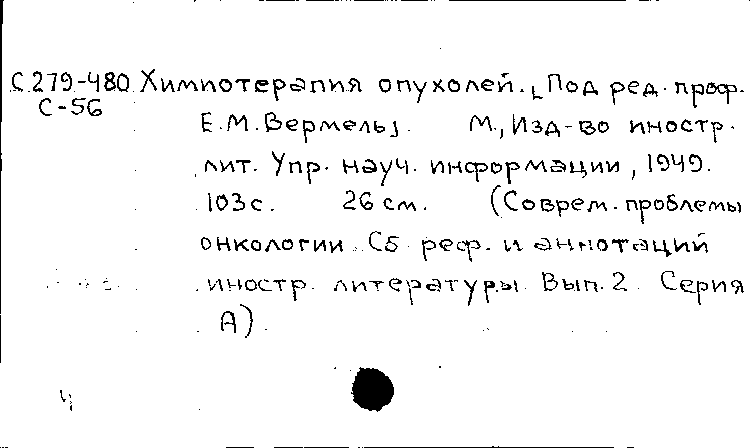 С 279-480 Химиотерапия опухолей. [Под ред. проф.
С-56
Е.М. Вермель]. М., Изд-во иностр.
лит. Упр. науч. информации, 1949.
103 с. 26 см. (Соврем. проблемы
онкологии. Сб. реф. и аннотаций
иностр. литературы. Вып. 2. Серия
А).